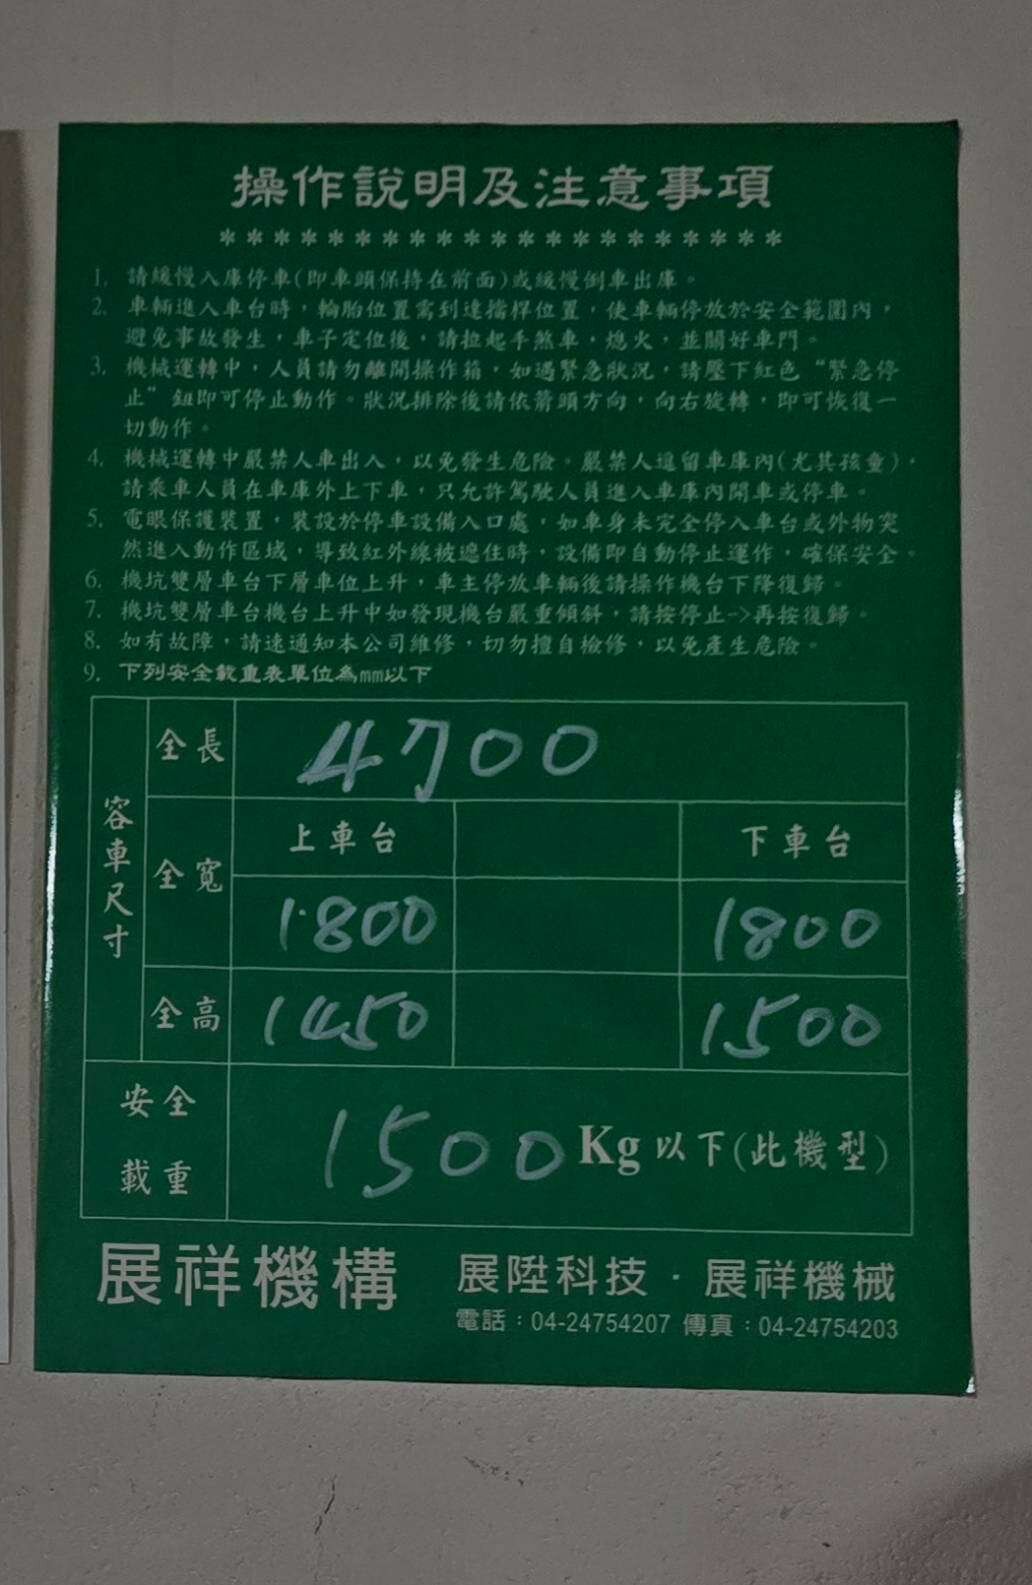 操作說明及注意事項
* * * * * * * * * * * * * * * * * * * * *
1. 請緩慢入庫停車(即車頭保持在前面)或緩慢倒車出庫。
2. 車輛進入車台時，輪胎位置需到達擋桿位置，使車輛停放於安全範圍內，
避免事故發生，車子定位後，請拉起手煞車，熄火，並關好車門。
3. 機械運轉中，人員請勿離開操作箱，如遇緊急狀況，請壓下紅色“緊急停
止”鈕即可停止動作。狀況排除後請依箭頭方向，向右旋轉，即可恢復一
切動作。
4. 機械運轉中嚴禁人車出入，以免發生危險。嚴禁人逗留車庫內(尤其孩童)，
請乘車人員在車庫外上下車，只允許駕駛人員進入車庫內開車或停車。
5. 電眼保護裝置，裝設於停車設備入口處，如車身未完全停入車台或外物突
然進入動作區域，導致紅外線被遮住時，設備即自動停止運作，確保安全。
6. 機坑雙層車台下層車位上升，車主停放車輛後請操作機台下降復歸。
7. 機坑雙層車台機台上升中如發現機台嚴重傾斜，請按停止->再按復歸。
8. 如有故障，請速通知本公司維修，切勿擅自檢修，以免產生危險。
9. 下列安全載重表單位為mm以下
容車尺寸
全長 4700
全寬 上車台 下車台
1800 1800
全高 1450 1500
安全
載重 1500 Kg 以下(此機型)
展祥機構 展陞科技．展祥機械
電話：04-24754207 傳真：04-24754203